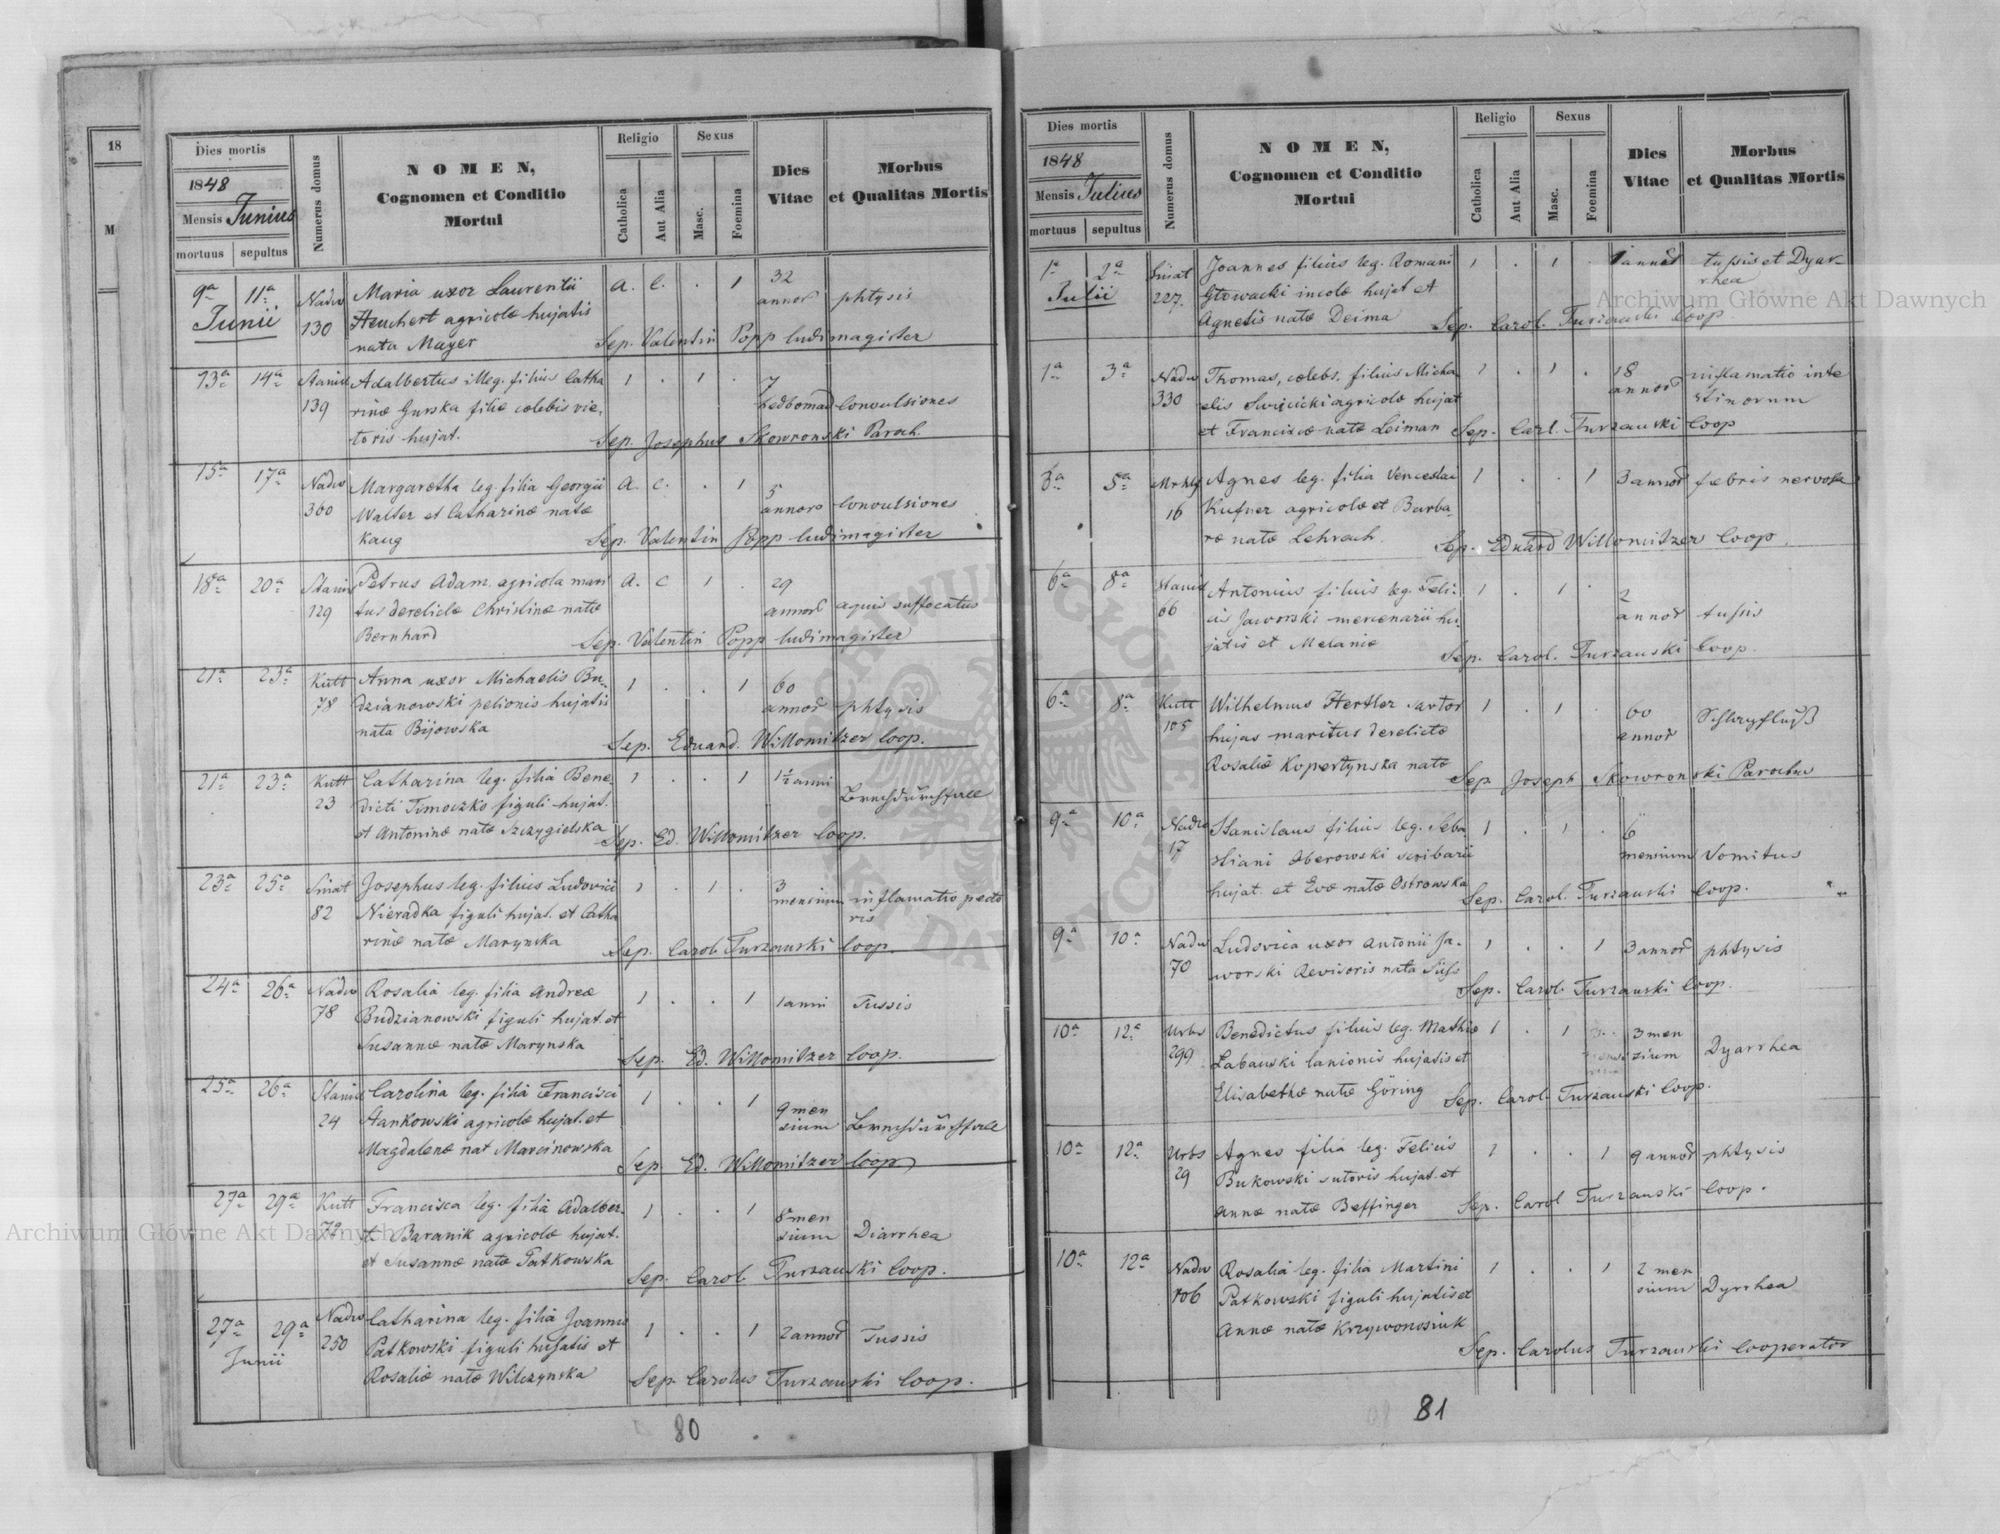 18
M
Dies mortis
1848
Mensis Junius
mortuus sepultus
Numerus domus
NOMEN,
Cognomen et Conditio
Mortui
Religio
Catholica
Aut Alia
Sexus
Masc.
Foemina
Dies
Vitae
Morbus
et Qualitas Mortis
9a 11a Nadw Maria uxor Laurentii a. c. . 1 32
Junii 130 Heuchert agricolæ hujatis annor phtysis
nata Mayer Sep. Valentin Popp ludimagister
13a 14a Stanis Adalbertus illeg. filius Catha 1 . 1 . 7
139 rinæ Gurska filiæ cœlebis vie hebdomad Convulsiones
toris hujat. Sep. Josephus Skowronski Paroch.
15a 17a Nadw Margaretha leg. filia Georgii a. c. . 1 5
360 Walter et Catharinæ natæ annor Convulsiones
Kaug Sep. Valentin Popp ludimagister
18a 20a Stanis Petrus Adam agricola mari a. c 1 . 29
129 tus derelictæ Christinæ natæ annor aquis suffocatus
Bernhard Sep. Valentin Popp ludimagister
21a 23a Kutt Anna uxor Michaelis Bu 1 . . 1 60
78 dzianowski pelionis hujatis annor phtysis
nata Bijowska Sep. Eduard. Willomitzer Coop.
21a 23a Kutt Catharina leg. filia Bene 1 . . 1 1½ anni
23 dicti Timoczko figuli hujat. Brechdurchfall
et Antoninæ natæ Szczygielska Sep. Ed. Willomitzer Coop.
23a 25a Smat Josephus leg. filius Ludovici 1 . 1 . 3
82 Nieradka figuli hujat. et Catha mensium inflamatio pecto
rinæ natæ Marynska ris
Sep. Carol. Turzanski Coop.
24a 26a Nadw Rosalia leg. filia Andreæ 1 . . 1 1 anni Tussis
78 Budzianowski figuli hujat. et
Susannæ natæ Marynska Sep. Ed. Willomitzer Coop.
25a 26a Stanis Carolina leg. filia Francisci 1 . . 1 9 men
24 Stankowski agricolæ hujat. et sium Brechdurchfall
Magdalenæ nat Marcinowska Sep. Ed. Willomitzer Coop
27a 29a Kutt Francisca leg. filia Adalber 1 . . 1 8 men
72 ti Baranik agricolæ hujat. sium Diarrhea
et Susannæ natæ Patkowska Sep. Carol. Turzanski Coop.
27a 29a Nadw Catharina leg. filia Joannis 1 . . 1 2 annor Tussis
Junii 250 Patkowski figuli hujatis et
Rosaliæ natæ Wilczynska Sep. Carolus Turzanski Coop.
80
Dies mortis
1848
Mensis Julius
mortuus sepultus
Numerus domus
NOMEN,
Cognomen et Conditio
Mortui
Religio
Catholica
Aut Alia
Sexus
Masc.
Foemina
Dies
Vitae
Morbus
et Qualitas Mortis
1a 2a Smat Joannes filius leg. Romani 1 . 1 . 1 annor tussis et Dyar
Julii 227. Głowacki incolæ hujat et rhea
Agnetis natæ Deima Sep. Carol. Turzanski Coop
1a 3a Nadw Thomas, cœlebs, filius Micha 1 . 1 . 18 inflamatio inte
330 elis Swiecicki agricolæ hujat annor stinorum
et Franciscæ natæ Leiman Sep. Carl. Turzanski Coop
3a 5a Agnes leg. filia Venceslai 1 . . 1 3 annor febris nervosa
16 Kufner agricolæ et Barba
ræ natæ Lehrach. Sep. Eduard Willomitzer Coop.
6a 8a Stanis Antonius filius leg. Feli 1 . 1 . 2
66 cis Jaworski mercenarii hu annor tussis
jatis et Melaniæ Sep. Carol. Turzanski Coop.
6a 8a Kutt Wilhelmus Hertler sartor 1 . 1 . 60
105 hujas maritus derelictæ annor Schlagfluß
Rosaliæ Kopertynska natæ Sep. Joseph Skowronski Parochus
9a 10a Nadw Stanislaus filius leg. Seba 1 . 1 . 6
17 stiani Oberowski scribarii mensium Vomitus
hujat. et Evæ natæ Ostrowska Sep. Carol. Turzanski Coop.
9a 10a Nadw Ludovica uxor Antonii Ja 1 . . 1 3 annor phtysis
70 worski Revisoris nata Süss
Sep. Carol. Turzanski Coop.
10a 12a Urbs Benedictus filius leg. Mathiæ 1 . 1 3 men
299 Labauski lanionis hujatis et sium Dyarrhea
Elisabethæ natæ Göring Sep. Carol. Turzanski Coop.
10a 12a Urbs Agnes filia leg. Felicis 1 . . 1 9 annor phtysis
29 Bukowski sutoris hujat. et
Annæ natæ Beffinger Sep. Carol Turzanski Coop.
10a 12a Nadw Rosalia leg. filia Martini 1 . . 1 2 men
106 Patkowski figuli hujatis et sium Dyrrhea
Annæ natæ Krzywonosiuk
Sep. Carolus Turzanski Cooperator
81
Archiwum Główne Akt Dawnych
Archiwum Główne Akt Dawnych
ARCHIWUM GŁÓWNE AKT DAWNYCH